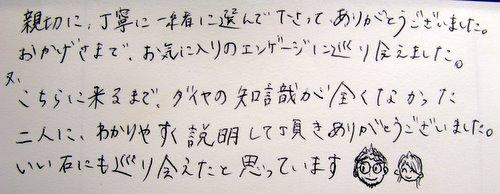 親切に、丁寧に一緒に選んで下さって、ありがとうございました。
おかげさまで、お気に入りのエンゲージに巡り会えました。
又、
こちらに来るまで、ダイヤの知識が全くなかった
二人に、わかりやすく説明して頂きありがとうございました。
いい石にも巡り会えたと思っています